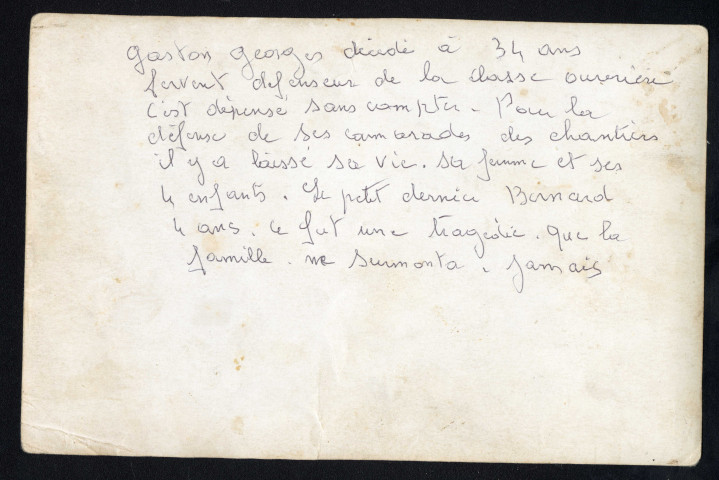 Gaston Georges décédé à 34 ans
fervent défenseur de la classe ouvrière
c'est dépensé sans compter. Pour la
défense de ses camarades des chantiers
il y a laissé sa vie. sa femme et ses
4 enfants. Le petit dernier Bernard
4 ans. ce fut une tragédie. que la
famille. ne surmonta. jamais